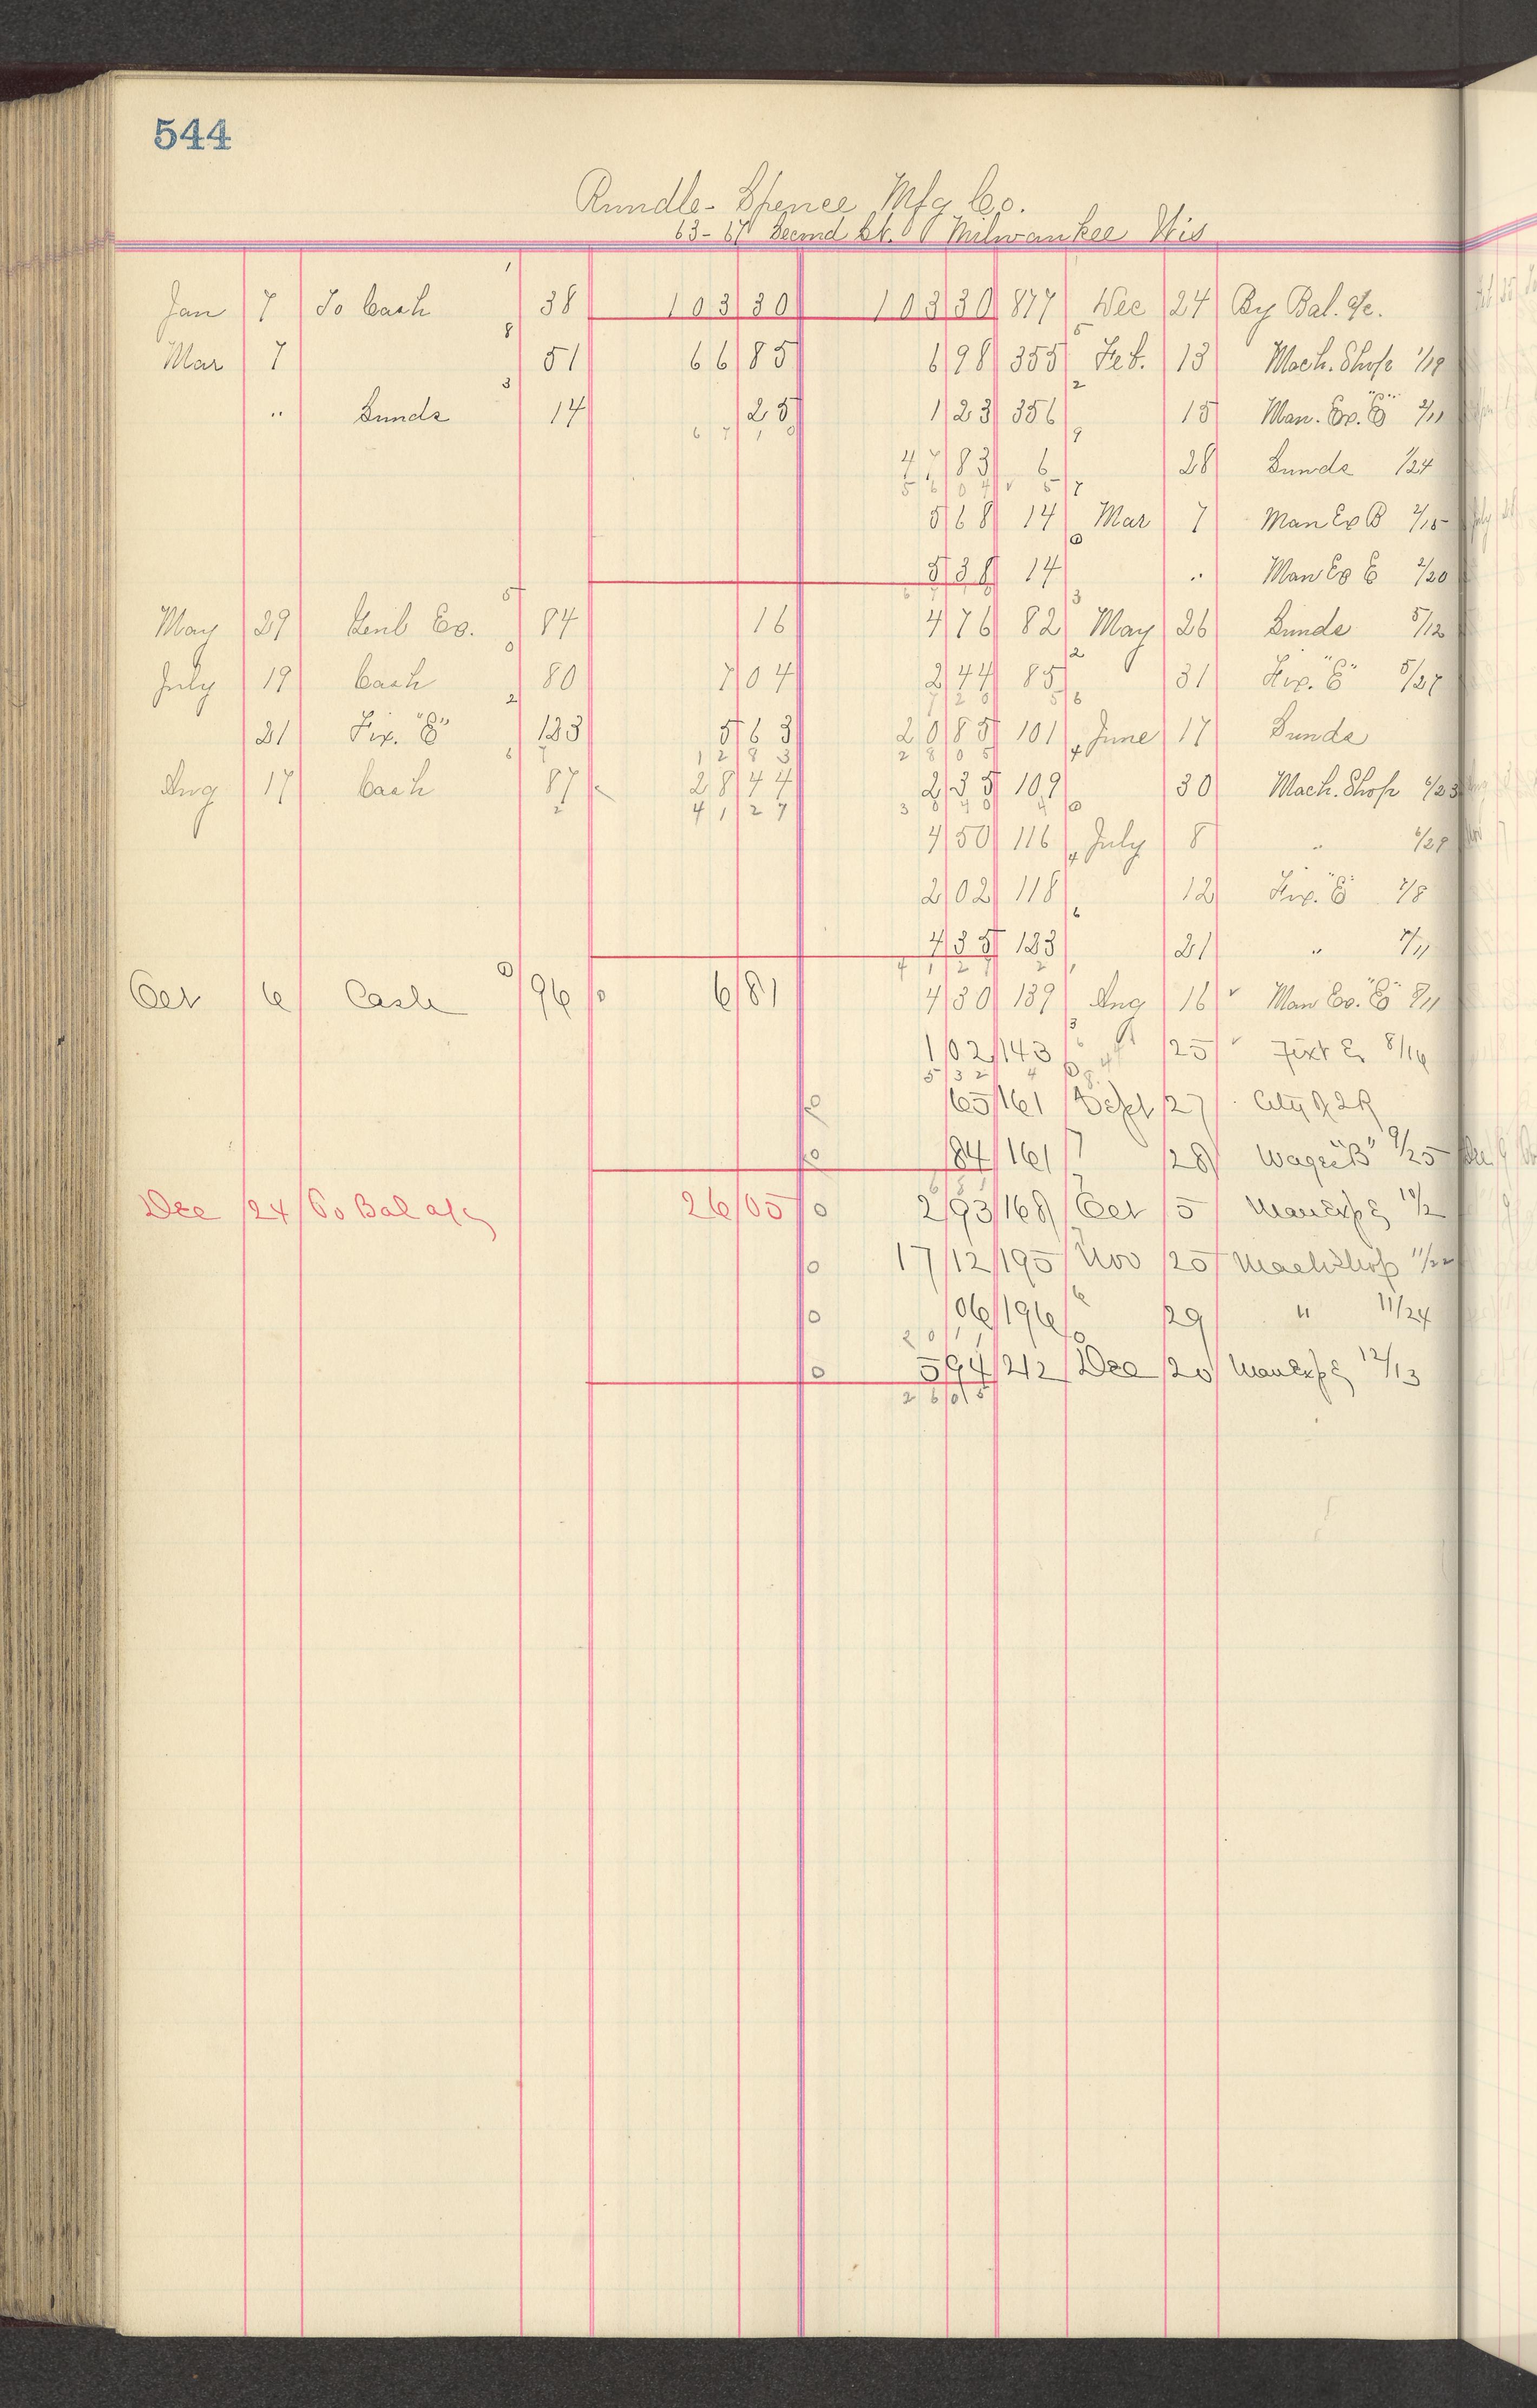 544
Rundle-Spence Mfg Co.
63-67 Second St. Milwaukee Wis
Jan 7 To Cash 38 103 30 103 30 877 Dec 24 By Bal. a/c.
Mar 7 51 66 85 6 98 355 Feb. 13 Mach. Shop 1/19
" Sunds 14 25 1 23 356 15 Man. Ex. "B" 2/11
67 10
47 83 6 28 Sunds 1/24
56 04
5 68 14 Mar 7 Man Ex B 2/15
5 38 14 " Man Ex E 2/20
May 29 Genl Ex. 84 16 4 76 82 May 26 Sunds 5/12
July 19 Cash 80 7 04 2 44 85 31 Fix. "E" 5/27
7 20
21 Fix. "E" 123 5 63 20 85 101 June 17 Sunds
12 83 28 05
Aug 17 Cash 87 28 44 2 35 109 30 Mach. Shop 6/23
41 27 30 40
4 50 116 July 8 " 6/29
2 02 118 12 Fix. "E" 7/8
4 35 123 21 " 7/11
41 27
Oct 6 Cash 96 6 81 4 30 139 Aug 16 Man Ex. "E" 8/11
1 02 143 25 Fixt E 8/16
5 32
65 161 Sept 27 City of L R
84 161 28 Wages "B" 9/25
6 81
Dec 24 To Bal a/c 26 05 2 93 168 Oct 5 Man Exp E 10/2
17 12 195 Nov 25 Mach Shop 11/22
06 196 29 " 11/24
20 11
5 94 212 Dec 20 Man Exp E 12/13
26 05